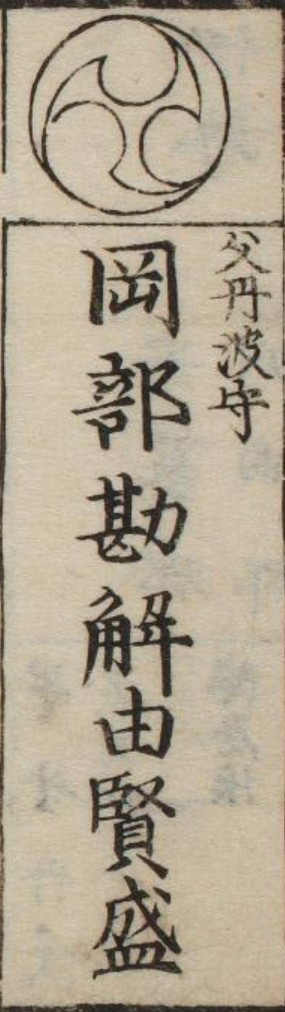 父丹波守
岡部勘解由賢盛